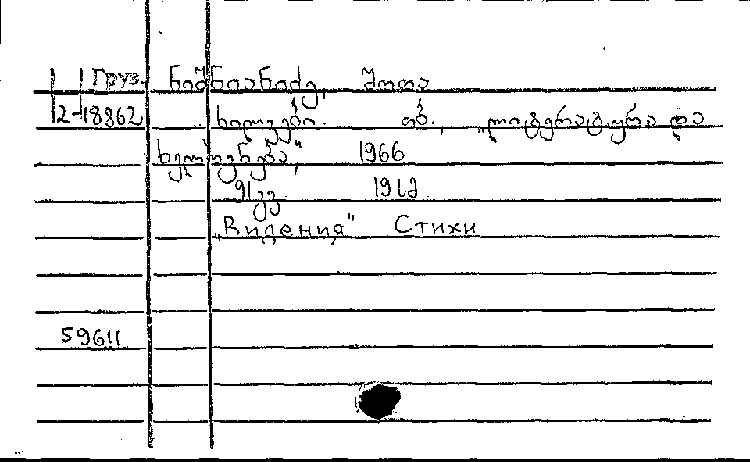 Груз. ნიშნიანიძე, შოთა
2-18862 ხილვები. თბ., „ლიტერატურა და
ხელოვნება“, 1966
91გვ 19სმ
„Видения“ Стихи
59611